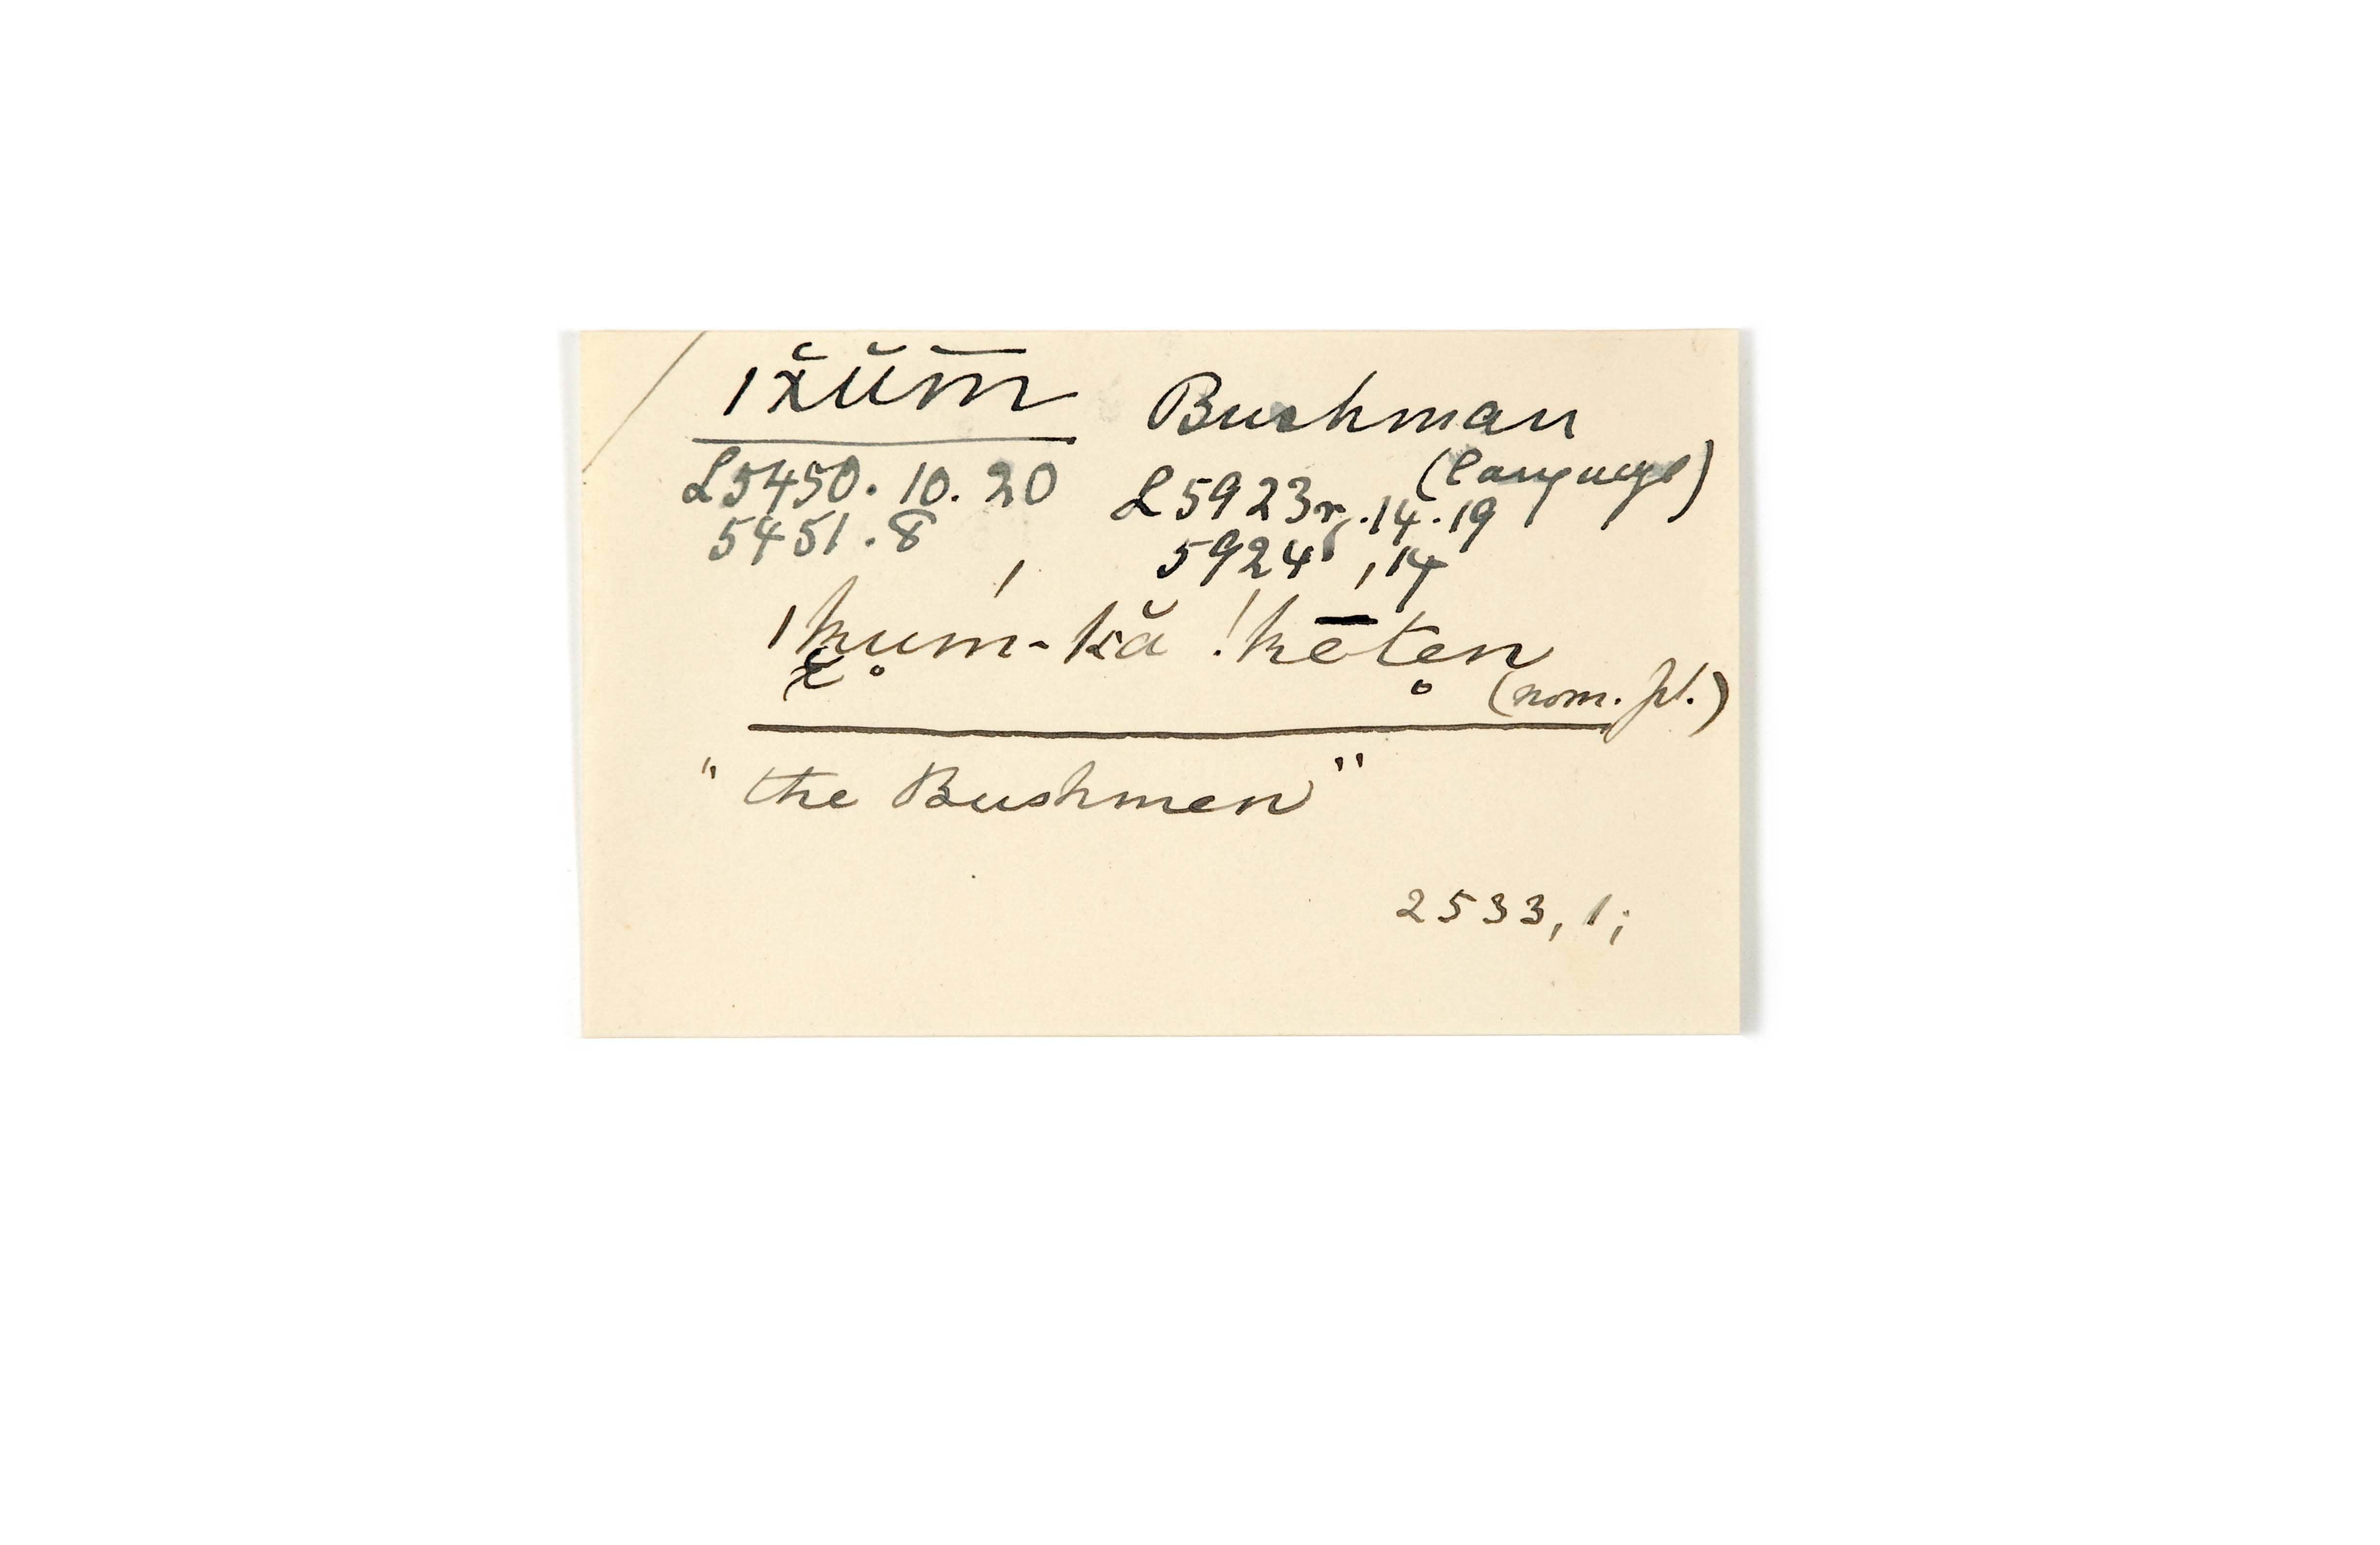 ǀx̆ŭm̄ Bushman
(language)
L5450. 10. 20 L5923r. .14.19
5451.8 5924r, 14
ǀkum̥-kă !kētẹn
(nom. pl.)
"the Bushmen"
2533, 1;